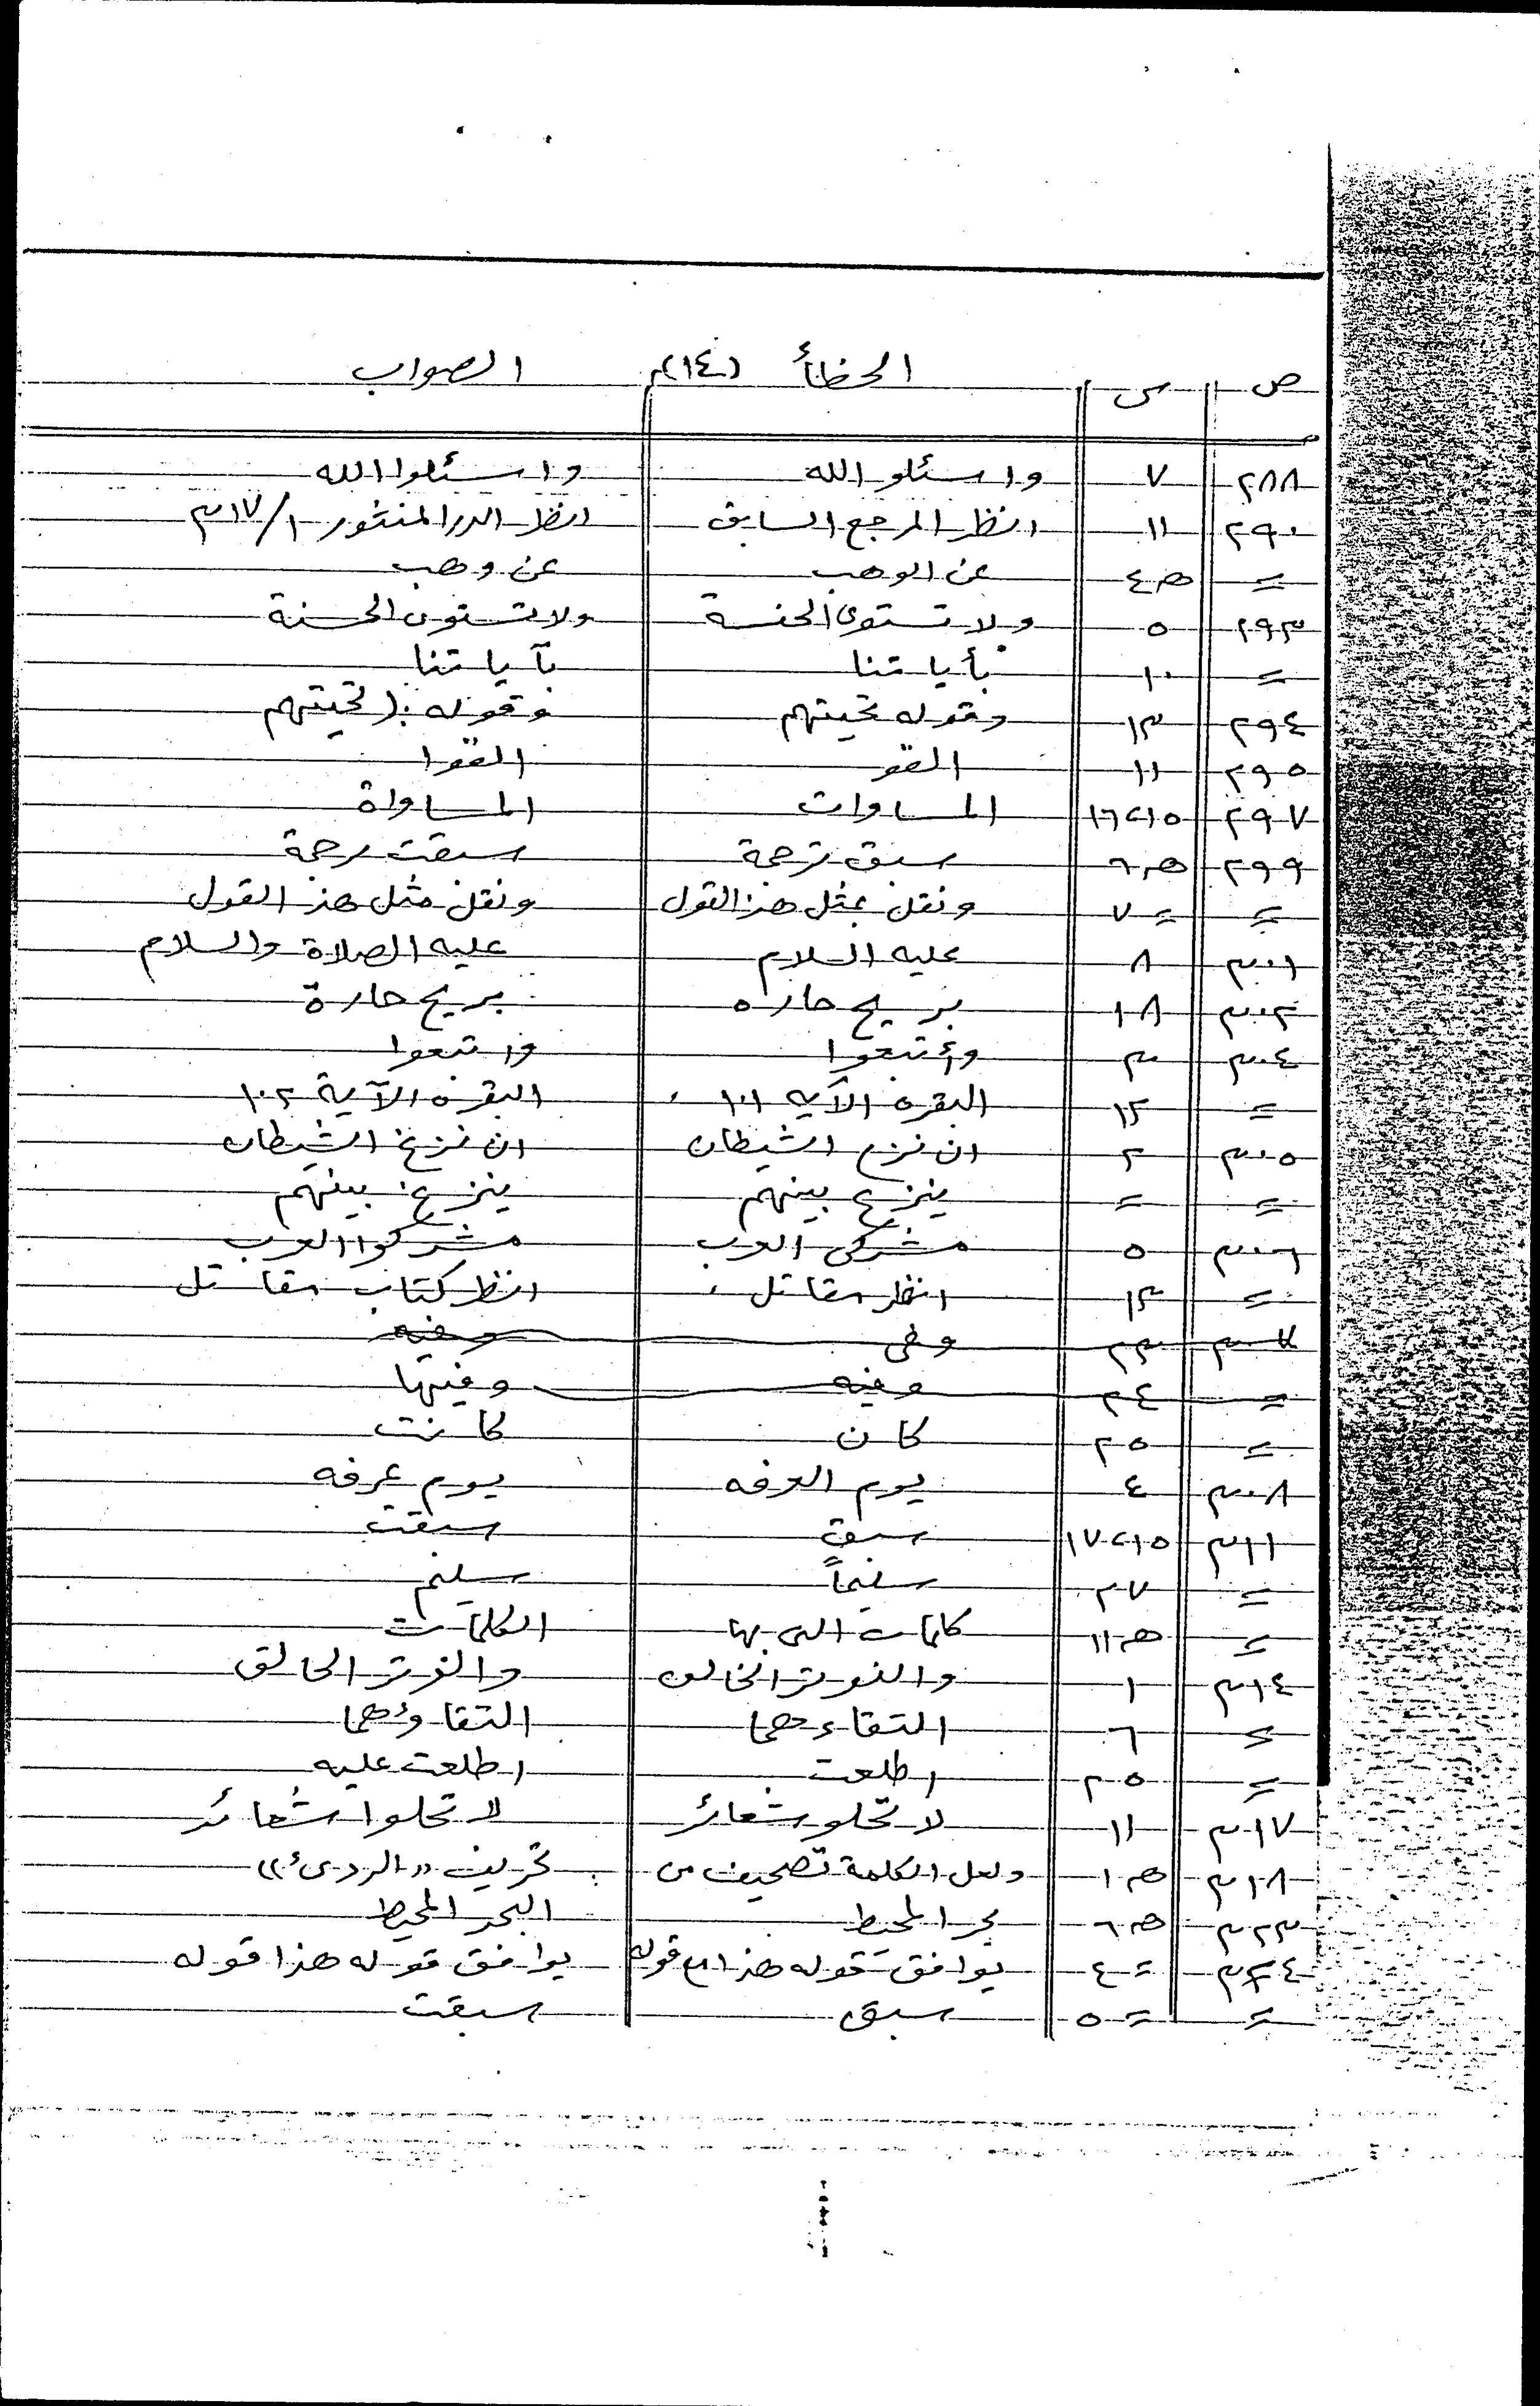 ص س الخطأ (١٤)م الصواب
٢٨٨ ٧ واسئلو الله واسئلوا الله
٢٩٠ ١١ انظر المرجع السابق انظر الدر المنثور ١/٣١٧
= ه ٤ عن الوهب عن وهب
٢٩٣ ٥ ولا تستوى الحنسة ولا تستوى الحسنة
= ١٠ بأياتنا بآياتنا
٢٩٤ ١٣ وقوله تحيتهم وقوله: (تحيتهم
٢٩٥ ١١ القو القوا
٢٩٧ ١٥، ١٦ المساوات المساواة
٢٩٩ ه ٦ سبق ترجمة سبقت رجمة
= = ٧ ونقل بمثل هذ القول ونقل مثل هذ القول
٣٠١ ٨ عليه السلام عليه الصلاة والسلام
٣٠٢ ١٨ بريح حاره بريح حارة
٣٠٤ ٣ وأتبعوا واتبعوا
= ١٢ البقره الآيه ١٠١ البقره الآية ١٠٢
٣٠٥ ٢ ان نزع الشيطان ان نزغ الشيطان
= = ينزع بينهم ينزغ بينهم
٣٠٦ ٥ مشركى العرب مشركوا العرب
= ١٣ انظر مقاتل انظر كتاب مقاتل
٣٠٧ ٢٣ وفى وفيه
= ٢٤ وفيه وفيها
= ٢٥ كان كانت
٣٠٨ ٤ يوم العرفه يوم عرفه
٣١١ ١٥، ١٧ سبق سبقت
= ٢٧ سليماً سليم
= ه ١١ كلمات التى بها الكلمات
٣١٤ ١ والخالق والوتر الخالق
= ٦ التقاءهما التقاؤهما
= ٢٥ اطلعت اطلعت عليه
٣١٧ ١١ لا تحلو شعائر لا تحلوا شعائر
٣١٨ ه ١ ولعل الكلمة تصحيف من تحريف "الردىء"
٣٢٣ ه ٦ بحر المحيط البحر المحيط
٣٢٤ = ٤ يوافق قوله هذا مع قوله يوافق قوله هذا قوله
= = ٥ سبق سبقت